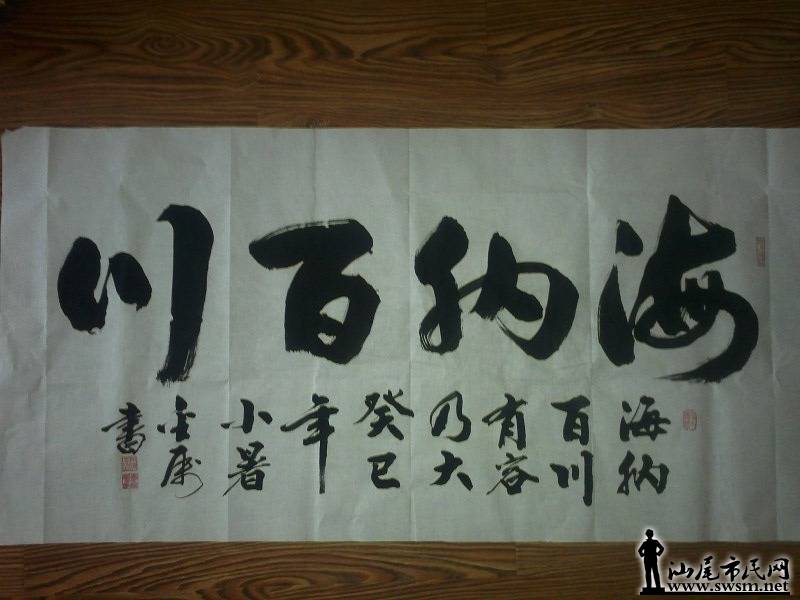 海纳百川
海纳
百川
有容
乃大
癸巳
年
小暑
書
汕尾市民网
www.swsm.net